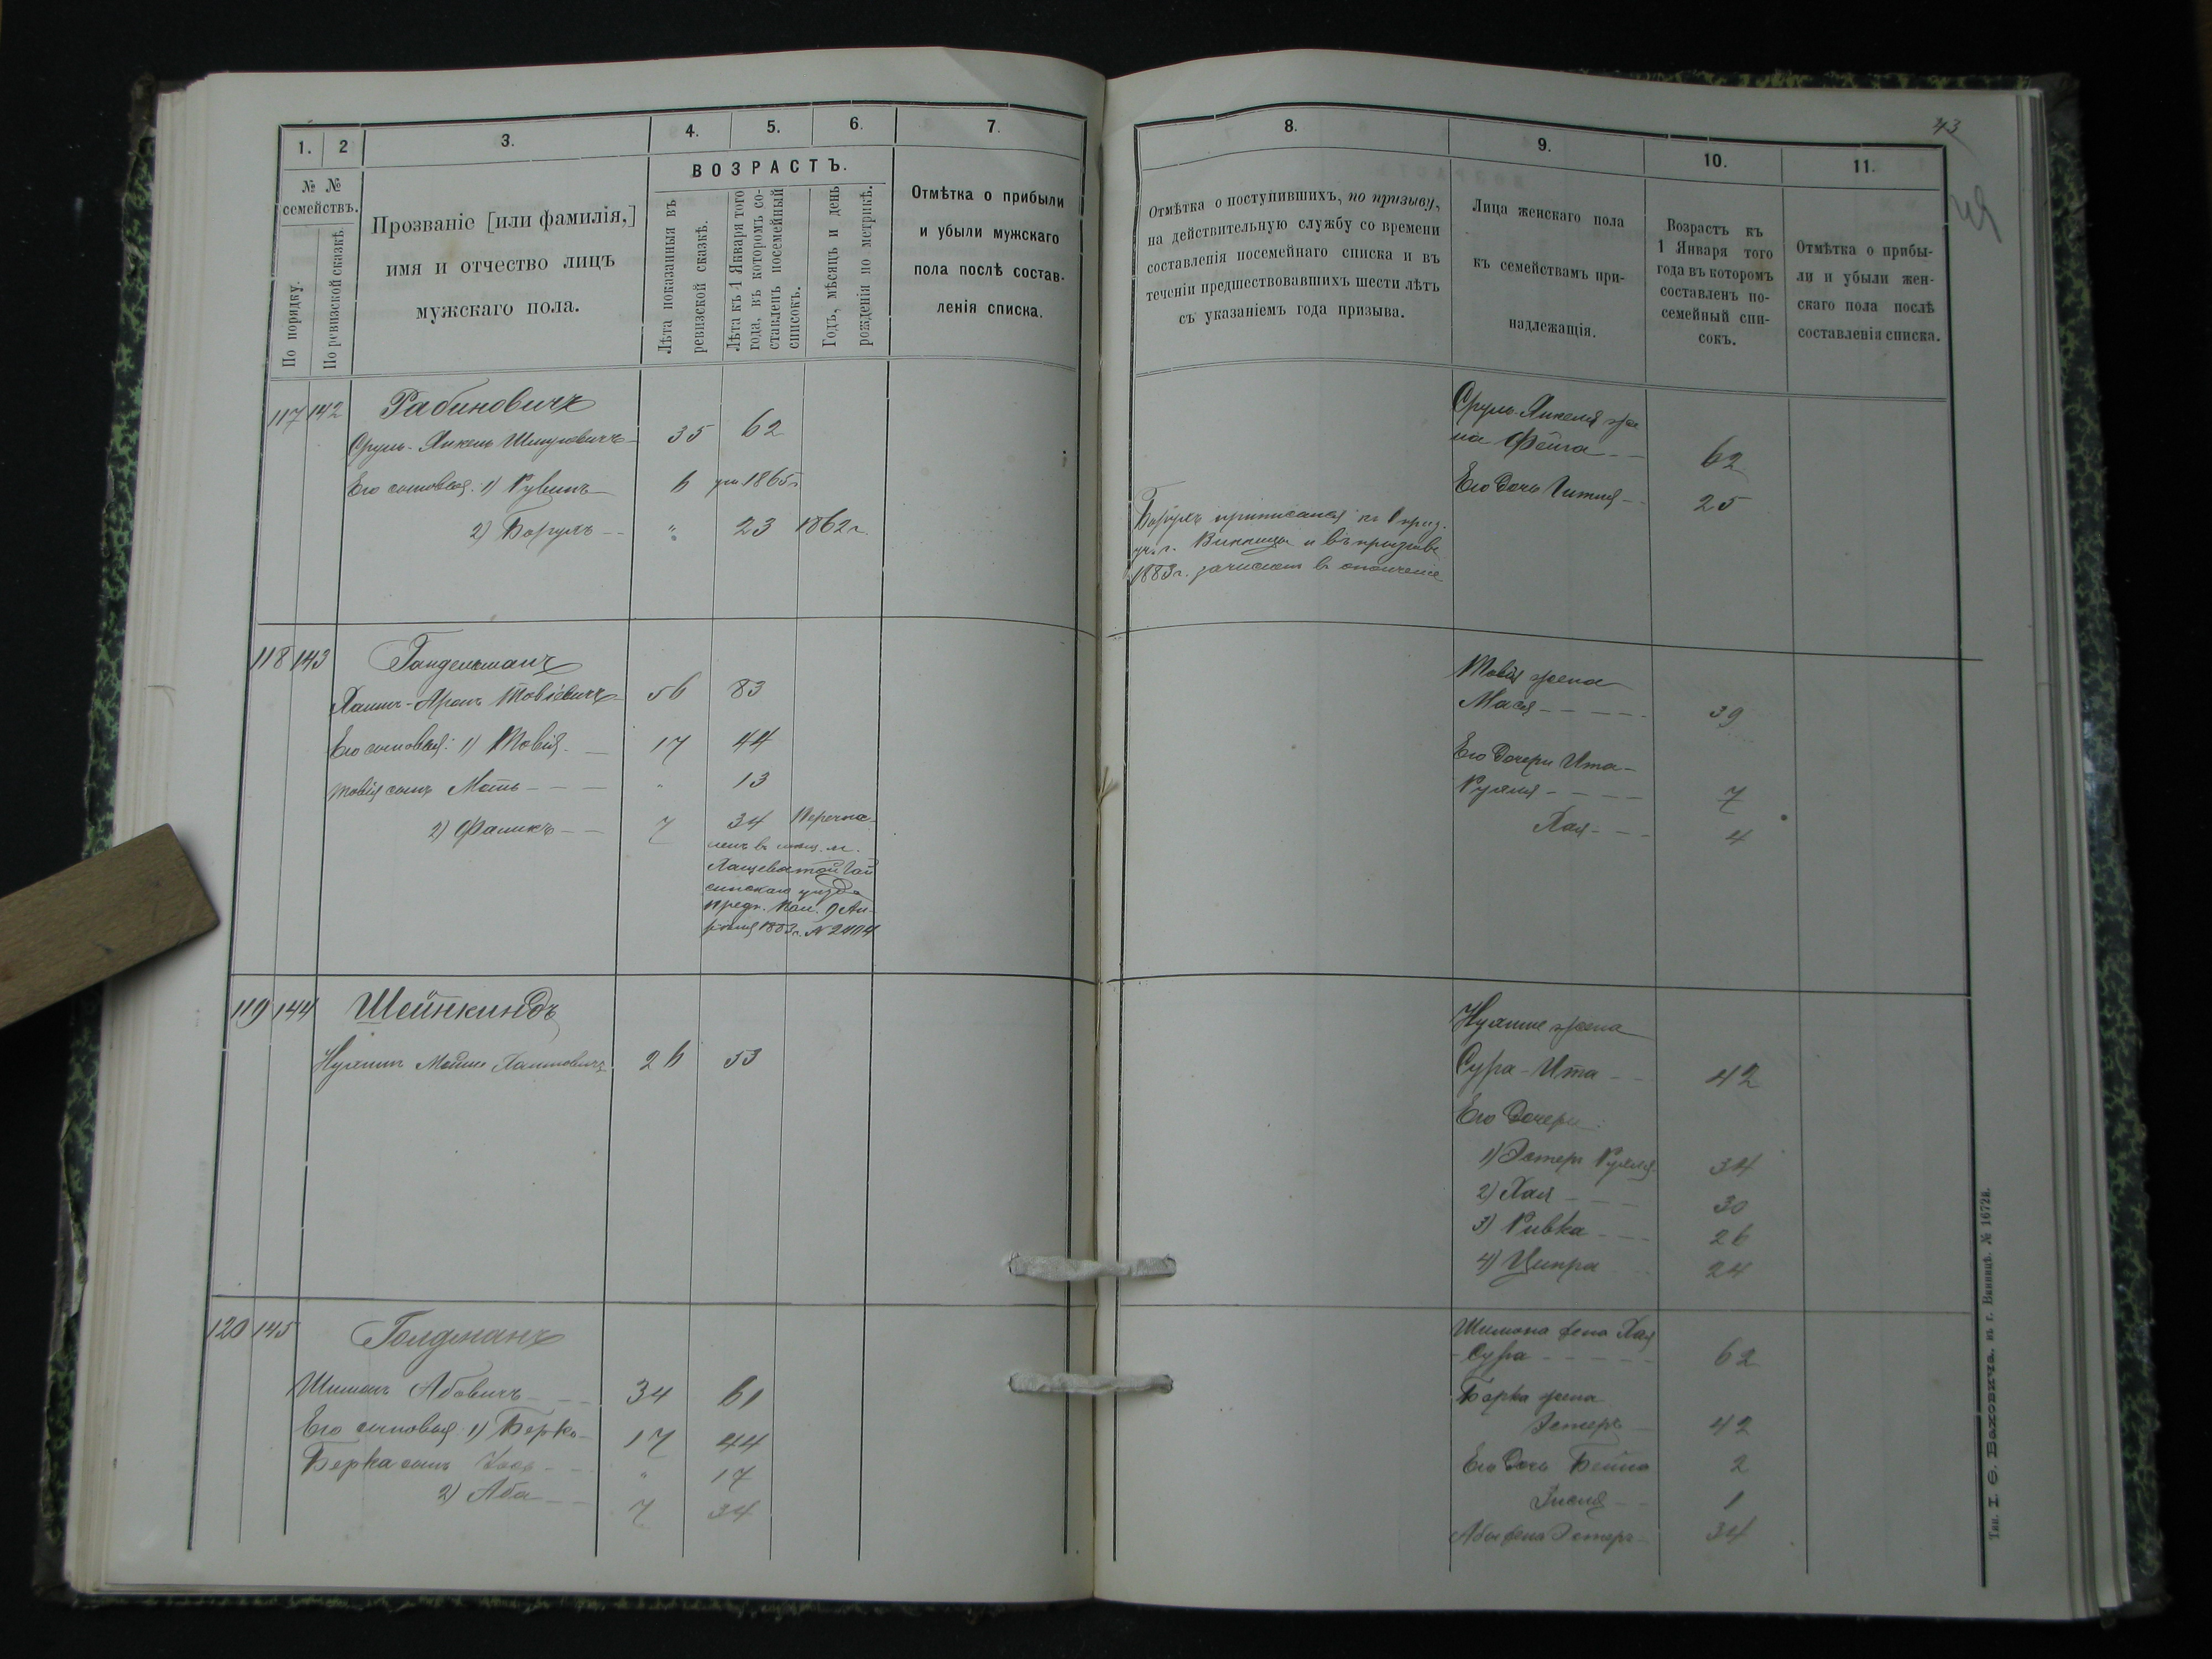 1. 2 3. 4. 5. 6. 7.
№ №
семействъ.
По порядку.
По ревизской сказкѣ.
Прозваніе [или фамилія,]
имя и отчество лицъ
мужскаго пола.
ВОЗРАСТЪ.
Лѣта показанныя въ
ревизской сказкѣ.
Лѣта къ 1 Января того
года, въ которомъ со-
ставленъ посемейный
списокъ.
Годъ, мѣсяцъ и день
рожденія по метрикѣ.
Отмѣтка о прибыли
и убыли мужскаго
пола послѣ состав-
ленія списка.
117 142 Рабиновичъ
Сруль-Янкель Шмулевичъ 35 62
Его сыновья: 1) Рувинъ 6 ум 1865 г
2) Борухъ -- " 23 1862 г.
118 143 Гандельманъ
Хаимъ-Аронъ Товіевичъ 56 83
Его сыновья: 1) Товія. 17 44
Товія сынъ Моть --- " 13
2) Фаликъ -- 7 34 Перечис-
ленъ в мѣщ. м.
Хащеватой Гай
синскаго уѣзда
предп. Пал. 9 Ап-
рѣля 1883 г. № 2404
119 144 Шейнкиндъ
Нухимъ Мошко Хаимовичъ 26 53
120 145 Голдманъ
Шимонъ Абовичъ -- 34 61
Его сыновья 1) Берко 17 44
Берка сынъ -- " 17
2) Аба -- 7 34
43
8. 9. 10. 11.
Отмѣтка о поступившихъ, по призыву,
на дѣйствительную службу со времени
составленія посемейнаго списка и въ
теченіи предшествовавшихъ шести лѣтъ
съ указаніемъ года призыва.
Лица женскаго пола
къ семействамъ при-
надлежащія.
Возрастъ къ
1 Января того
года въ которомъ
составленъ по-
семейный спи-
сокъ.
Отмѣтка о прибы-
ли и убыли жен-
скаго пола послѣ
составленія списка.
Сруль-Янкеля же
на Фейга -- 62
Его дочь Гитля - 25
Борухъ приписанъ къ приз.
уч. г. Винницы и въ призывѣ
1883 г. зачисленъ в ополченіе
Товія жена
Мася ---- 39
Его дочери Ита-
Рухля ---- 7
Хая --- 4
Нухима жена
Сура-Ита -- 42
Его дочери:
1) Эстеръ Рухля 34
2) Хая --- 30
3) Ривка --- 26
4) Ципра 24
Шимона жена Хая
-Сура ----- 62
Берка жена
Эстеръ 42
Его дочь Бейла 2
Зисля -- 1
Абы жена Эстеръ 34
Тип. І. С. Баховича. въ г. Винницѣ. № 1672в.